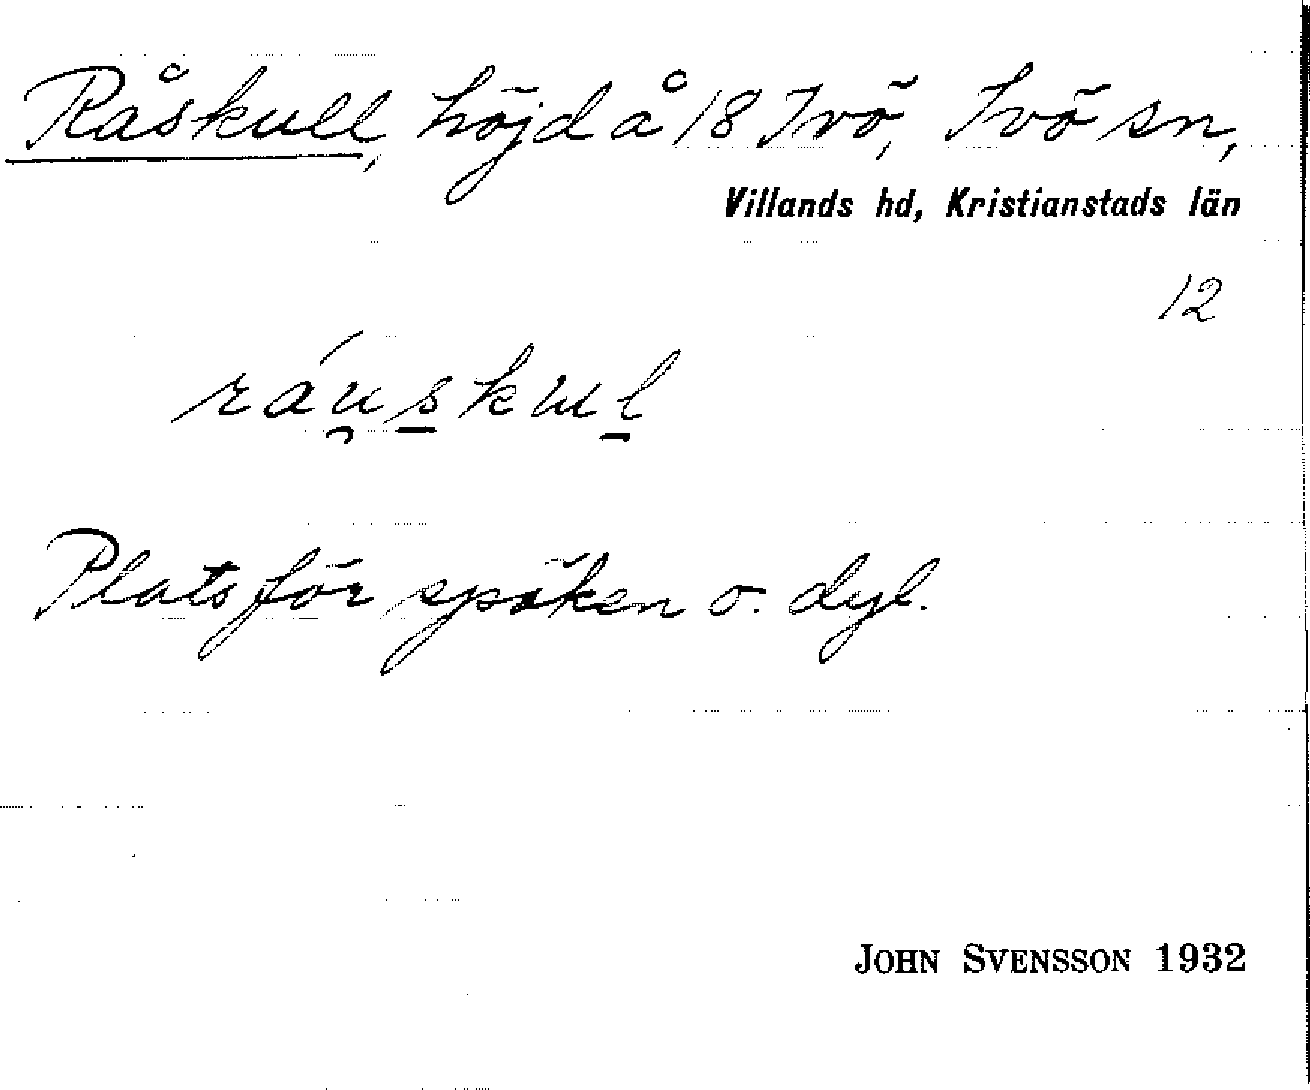 Råskull, höjd å 18 Ivö, Ivö sn,
Villands hd, Kristianstads län
12
ráu̯s̱kuḻ
Plats för spöken o. dyl.
JOHN SVENSSON 1932